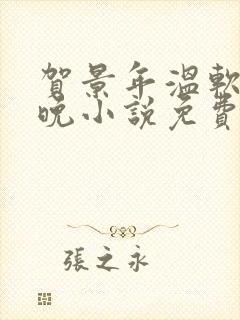 賀景年溫軟
晚小說免費
張之永